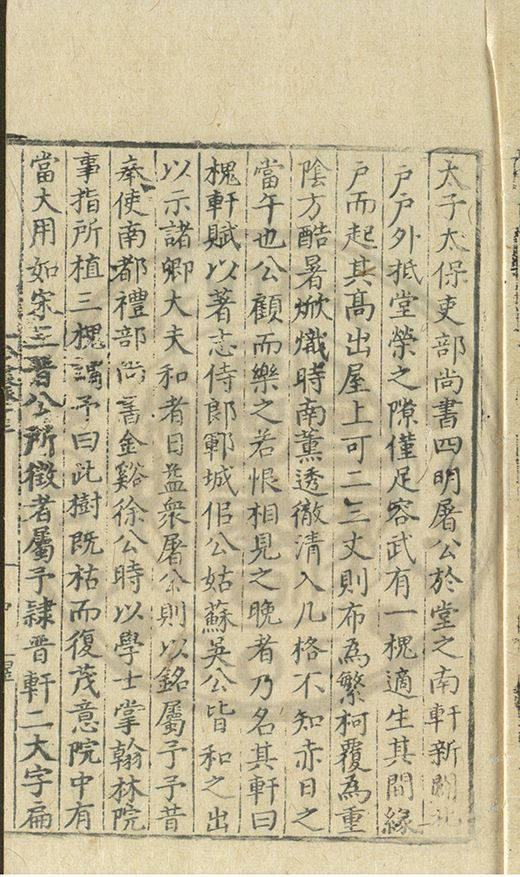 太子太保吏部尚書四明屠公於堂之南軒新闢北
戶戶外抵堂榮之隙僅足容武有一槐適生其間緣
戶而起其高出屋上可二三丈則布為繁柯覆為重
陰方酷暑焮熾時南薰透徹清入几格不知赤日之
當午也公顧而樂之若恨相見之晚者乃名其軒曰
槐軒賦以著志侍郎鄆城佀公姑蘇吳公皆和之出
以示諸卿大夫和者日益衆屠公則以銘屬予予昔
奉使南都禮部尚書金谿徐公時以學士掌翰林院
事指所植三槐謂予曰此樹既枯而復茂意院中有
當大用如宋三晉公所徵者屬予隷晋軒二大字扁